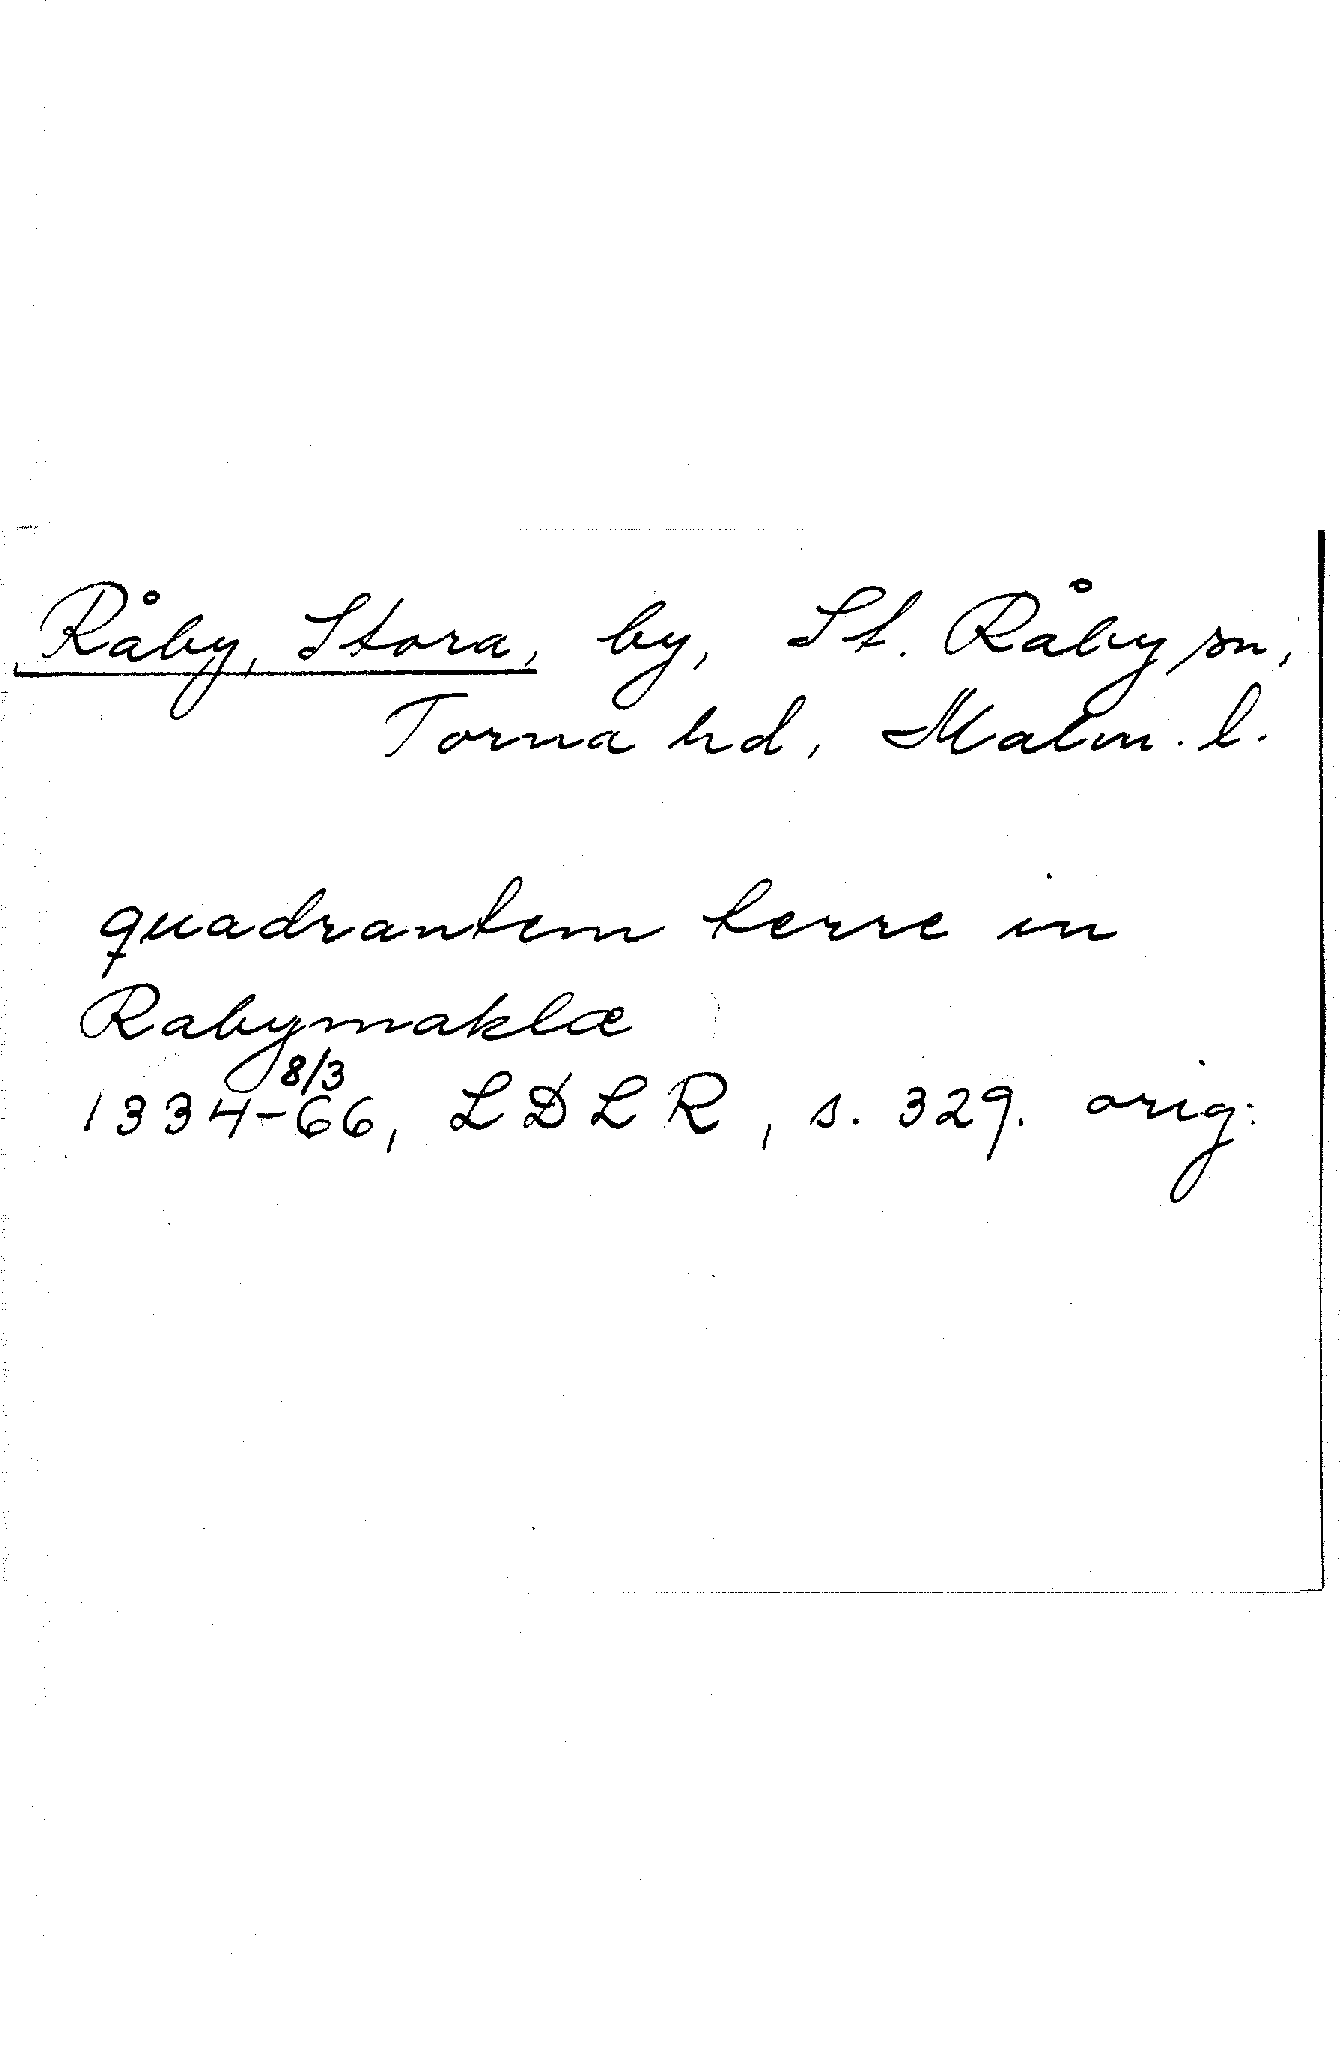 Råby, Stora, by, St. Råby sn,
Torna hd, Malm. l.
quadrantem terre in
Rabymaklæ
8/3
1334-66, LDLR, s. 329. orig.